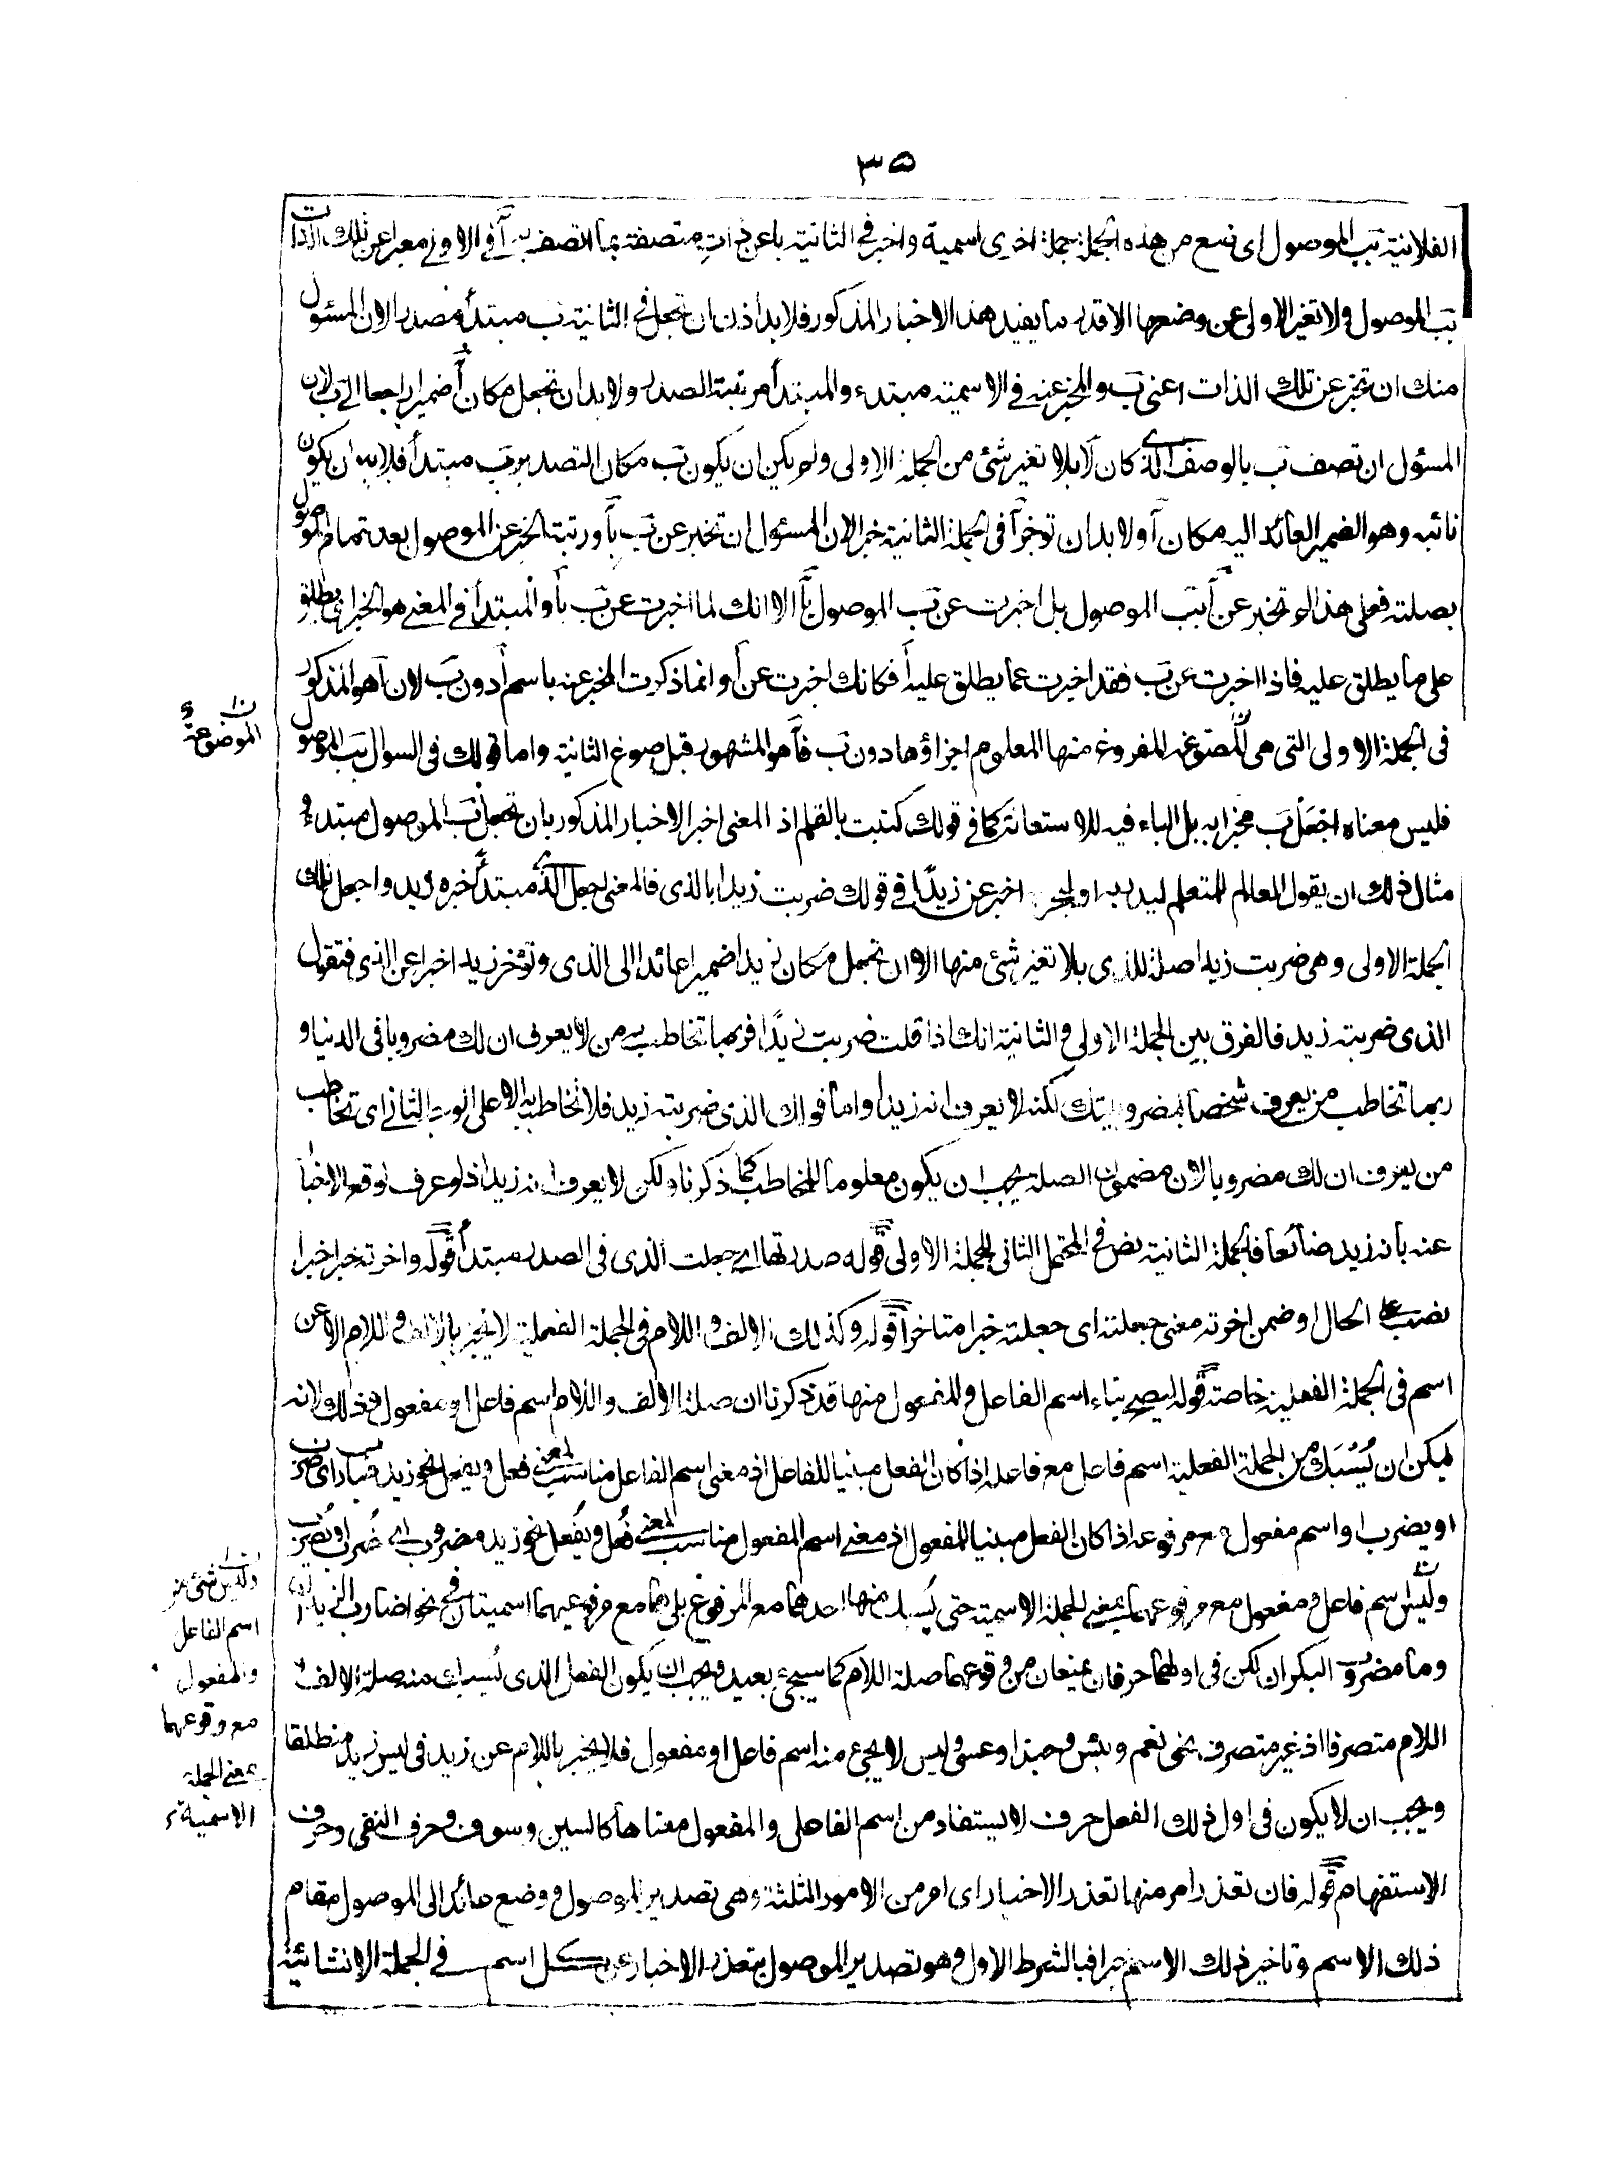 ٣٥
الفلانية بب الموصول اى تضع من هذه الجملة جملة اخرى اسمية واخبر فى الثانية بآ عن ذات متصفة بما اتصف به آ فى الاولى معبرا عن تلك الذات
بب الموصول ولا تغير الاولى عن وضعها الا قدر ما يفيد هذا الاخبار المذكور فلابد اذن ان تجعل فى الثانية ب مبتدأ مصدرا لان المسئول
منك ان تخبر عن تلك الذات اعنى ب والمخبر عنه فى الاسمية مبتدء والمبتدأ مرتبة الصدر ولا بد ان تجعل مكان آ ضميرا راجعا الى ب لان
المسؤل ان تصف ب بالوصف الذى كان لآ بلا تغير شئ من الجملة الاولى ولم يكن ان يكون ب مكان آ لتصدير ب مبتدأ فلابد ان يكون
نائبه وهو الضمير العائد اليه مكان آ ولا بد ان تؤخر آ فى الجملة الثانية خبرا لان المسئول ان تخبر عن ب بآ ورتبة الخبر عن الموصول بعد تمام الموصول
بصلته فعلى هذا لم تخبر عن آ بب الموصول بل اخبرت عن ب الموصول بآ الا انك لما اخبرت عن ب بآ والمبتدأ فى المعنى هو الخبر اى يطلق
على ما يطلق عليه فاذا اخبرت عن ب فقد اخبرت عما يطلق عليه آ فكانك اخبرت عن آ وانما ذكرت المخبر عنه باسم آ دون ب لان آ هو المذكور
فى الجملة الاولى التى هى المصوغة المفروغ منها المعلوم اجزاؤها دون ب فآ هو المشهور قبل صوغ الثانية واما قولك فى السوال بب الموصول
فليس معناه اجعل ب مخبرا به بل الباء فيه للاستعانة كما فى قولك كتبت بالقلم اذ المعنى اخبر الاخبار المذكور بان تجعل ب الموصول مبتدء
مثال ذلك ان يقول العالم للمتعلم ليدربه او اخبر عن زيدًا فى قولك ضربت زيدا بالذى فالمعنى اجعل الذى مبتدأ خبره زيد واجعل تلك
الجملة الاولى وهى ضربت زيدا صلة للذى بلا تغير شئ منها الا ان تجعل مكان زيدا ضميرا عائدا الى الذى وتؤخر زيدا خبرا عن الذى فتقول
الذى ضربته زيد فالفرق بين الجملة الاولى والثانية انك اذا قلت ضربت زيدًا فربما تخاطب به من لا يعرف ان لك مضروبا فى الدنيا و
ربما تخاطب من يعرف شخصا بمضروبيتك لكنه لا يعرف انه زيدا واما قولك الذى ضربته زيد فلا تخاطب به الا على الوجه الثانى اى تخاطب
من يعرف ان لك مضروبا لان مضمون الصلة يجب ان يكون معلوما للمخاطب كما ذكرنا ولكن لا يعرف انه زيد اذ لو عرف لوقع الاخبار
عنه بانه زيد ضائعا فالجملة الثانية نص فى المحتمل الثانى للجملة الاولى قوله صدرتها اى جعلت الذى فى الصدر مبتدأ قوله واخرته خبرا خبرا
نصب على الحال او ضمن اخرته معنى جعلته اى جعلته خبرا متاخرا قوله وكذلك الالف واللام فى الجملة الفعلية لا يخبر بالالف واللام الا عن
اسم فى الجملة الفعلية خاصة قوله ليصح بناء اسم الفاعل والمفعول منها قد ذكرنا ان صلة الالف واللام اسم فاعل او مفعول وذلك لانه
يمكن ان يُسْبَك من الجملة الفعلية اسم فاعل مع فاعله اذا كان الفعل مبنيا للفاعل اذ معنى اسم الفاعل مناسب لمعنى فعل ويفعل نحو زيد ضارب اى ضرب
او يضرب او اسم مفعول مع مرفوعه اذا كان الفعل مبنيا للمفعول اذ معنى اسم المفعول مناسب لمعنى فُعل ويُفعل نحو زيد مضروب اى ضُرب او يُضرب
وليس اسم فاعل ومفعول مع مرفوعهما بمعنى الجملة الاسمية حتى يُسبك منها احدهما مع المرفوع بلى هما مع مرفوعيهما اسميتان فى نحو اضارب الزيدان
وما مضروب البكران لكن فى اولهما حرفان يمنعان من وقوعهما صلة اللام كما سيجئ بعيد ويجب ان يكون الفعل الذى يُسبك منه صلة الالف و
اللام متصرفا اذ غير متصرف نحو نعم وبئس وحبذا وعسى وليس لا يجئ منه اسم فاعل او مفعول فلا يخبر باللام عن زيد فى ليس زيد منطلقا
ويجب ان لا يكون فى اول ذلك الفعل حرف لا يستفاد من اسم الفاعل والمفعول معناها كالسين وسوف وحرف النفى وحرف
الاستفهام قوله فان تعذر امر منها تعذر الاخبار اى امر من الامور الثلثة وهى تصدير الموصول ووضع عائد الى الموصول مقام
ذلك الاسم وتاخير ذلك الاسم خبرا فبالشرط الاول وهو تصدير الموصول يتعذر الاخبار عن كل اسم فى الجملة الانشائية
الموضوعة
شئ من
اسم الفاعل
والمفعول
مع وقوعهما
بمعنى الجملة
الاسمية